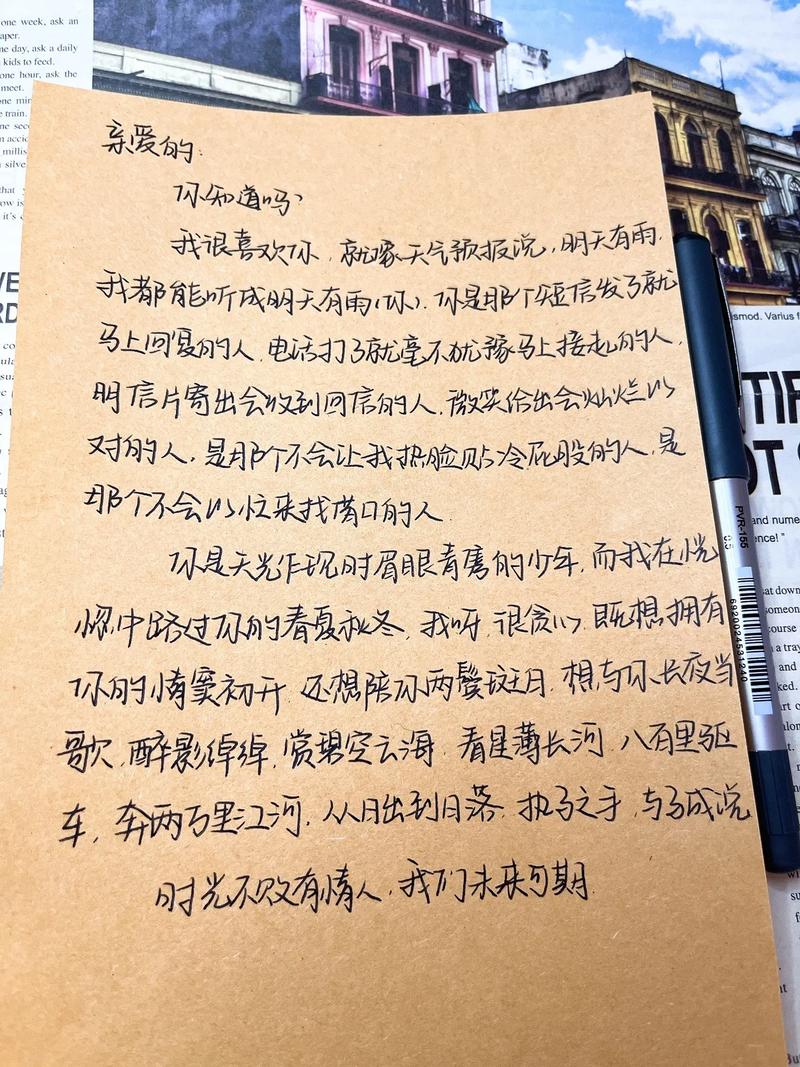 one week, ask an
aper.
ne day, ask a daily
kids to feed.
one hour, ask the
meet.
one min
train.
one seco
accid
millis
silve
that
it's c
亲爱的:
你知道吗?
我很喜欢你,就像天气预报说,明天有雨,
我都能听成明天有雨(你).你是那个短信发了就
马上回复的人,电话打了就毫不犹豫马上接起的人,
明信片寄出会收到回信的人,微笑给出会灿烂以
对的人,是那个不会让我热脸贴冷屁股的人,是
那个不会以忙来找借口的人.
你是天光乍现时眉眼青隽的少年,而我在恍
惚中路过你的春夏秋冬,我呀,很贪心,既想拥有
你的情窦初开,还想陪你两鬓斑白,想与你长夜当
歌,醉影绰绰,赏碧空云海,看星薄长河,八百里驱
车,奔两万里江河,从日出到日落,执子之手,与子成说
时光不败有情人,我们未来可期.
PVR-155
0.5
6920024531240
ismod. Varius f
TIF
OT
and nume
ence! "